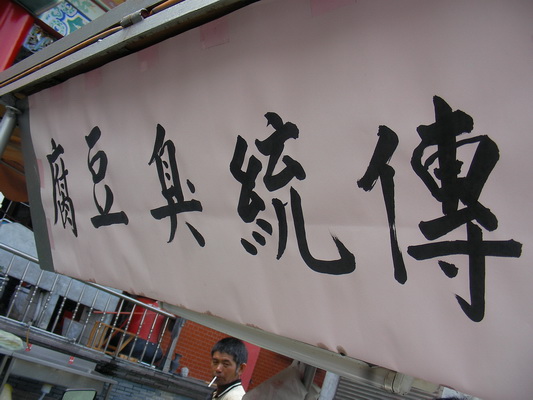 傳統臭豆腐